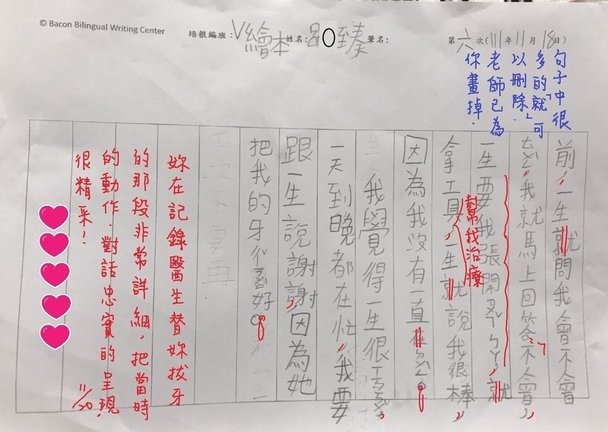 © Bacon Bilingual Writing Center
培根編班：V繪本 姓名：呂○臻 筆名：
第六次(111年11月18日)
句子中很
多的「就」可
以刪除，
老師已為
你畫掉。
前，一生就問我會不會
我就馬上回答不會，
一生要我張開ㄗㄨㄟˇ，就
拿工具，一生就說我很棒，
幫我治療
因為我沒有一直
我覺得一生很
一天到晚都在忙，我要
跟一生說謝謝，因為她
把我的牙
妳在記錄醫生替妳拔牙
的那段非常詳細，把當時
的動作、對話忠實的呈現，
很精采！
11/20